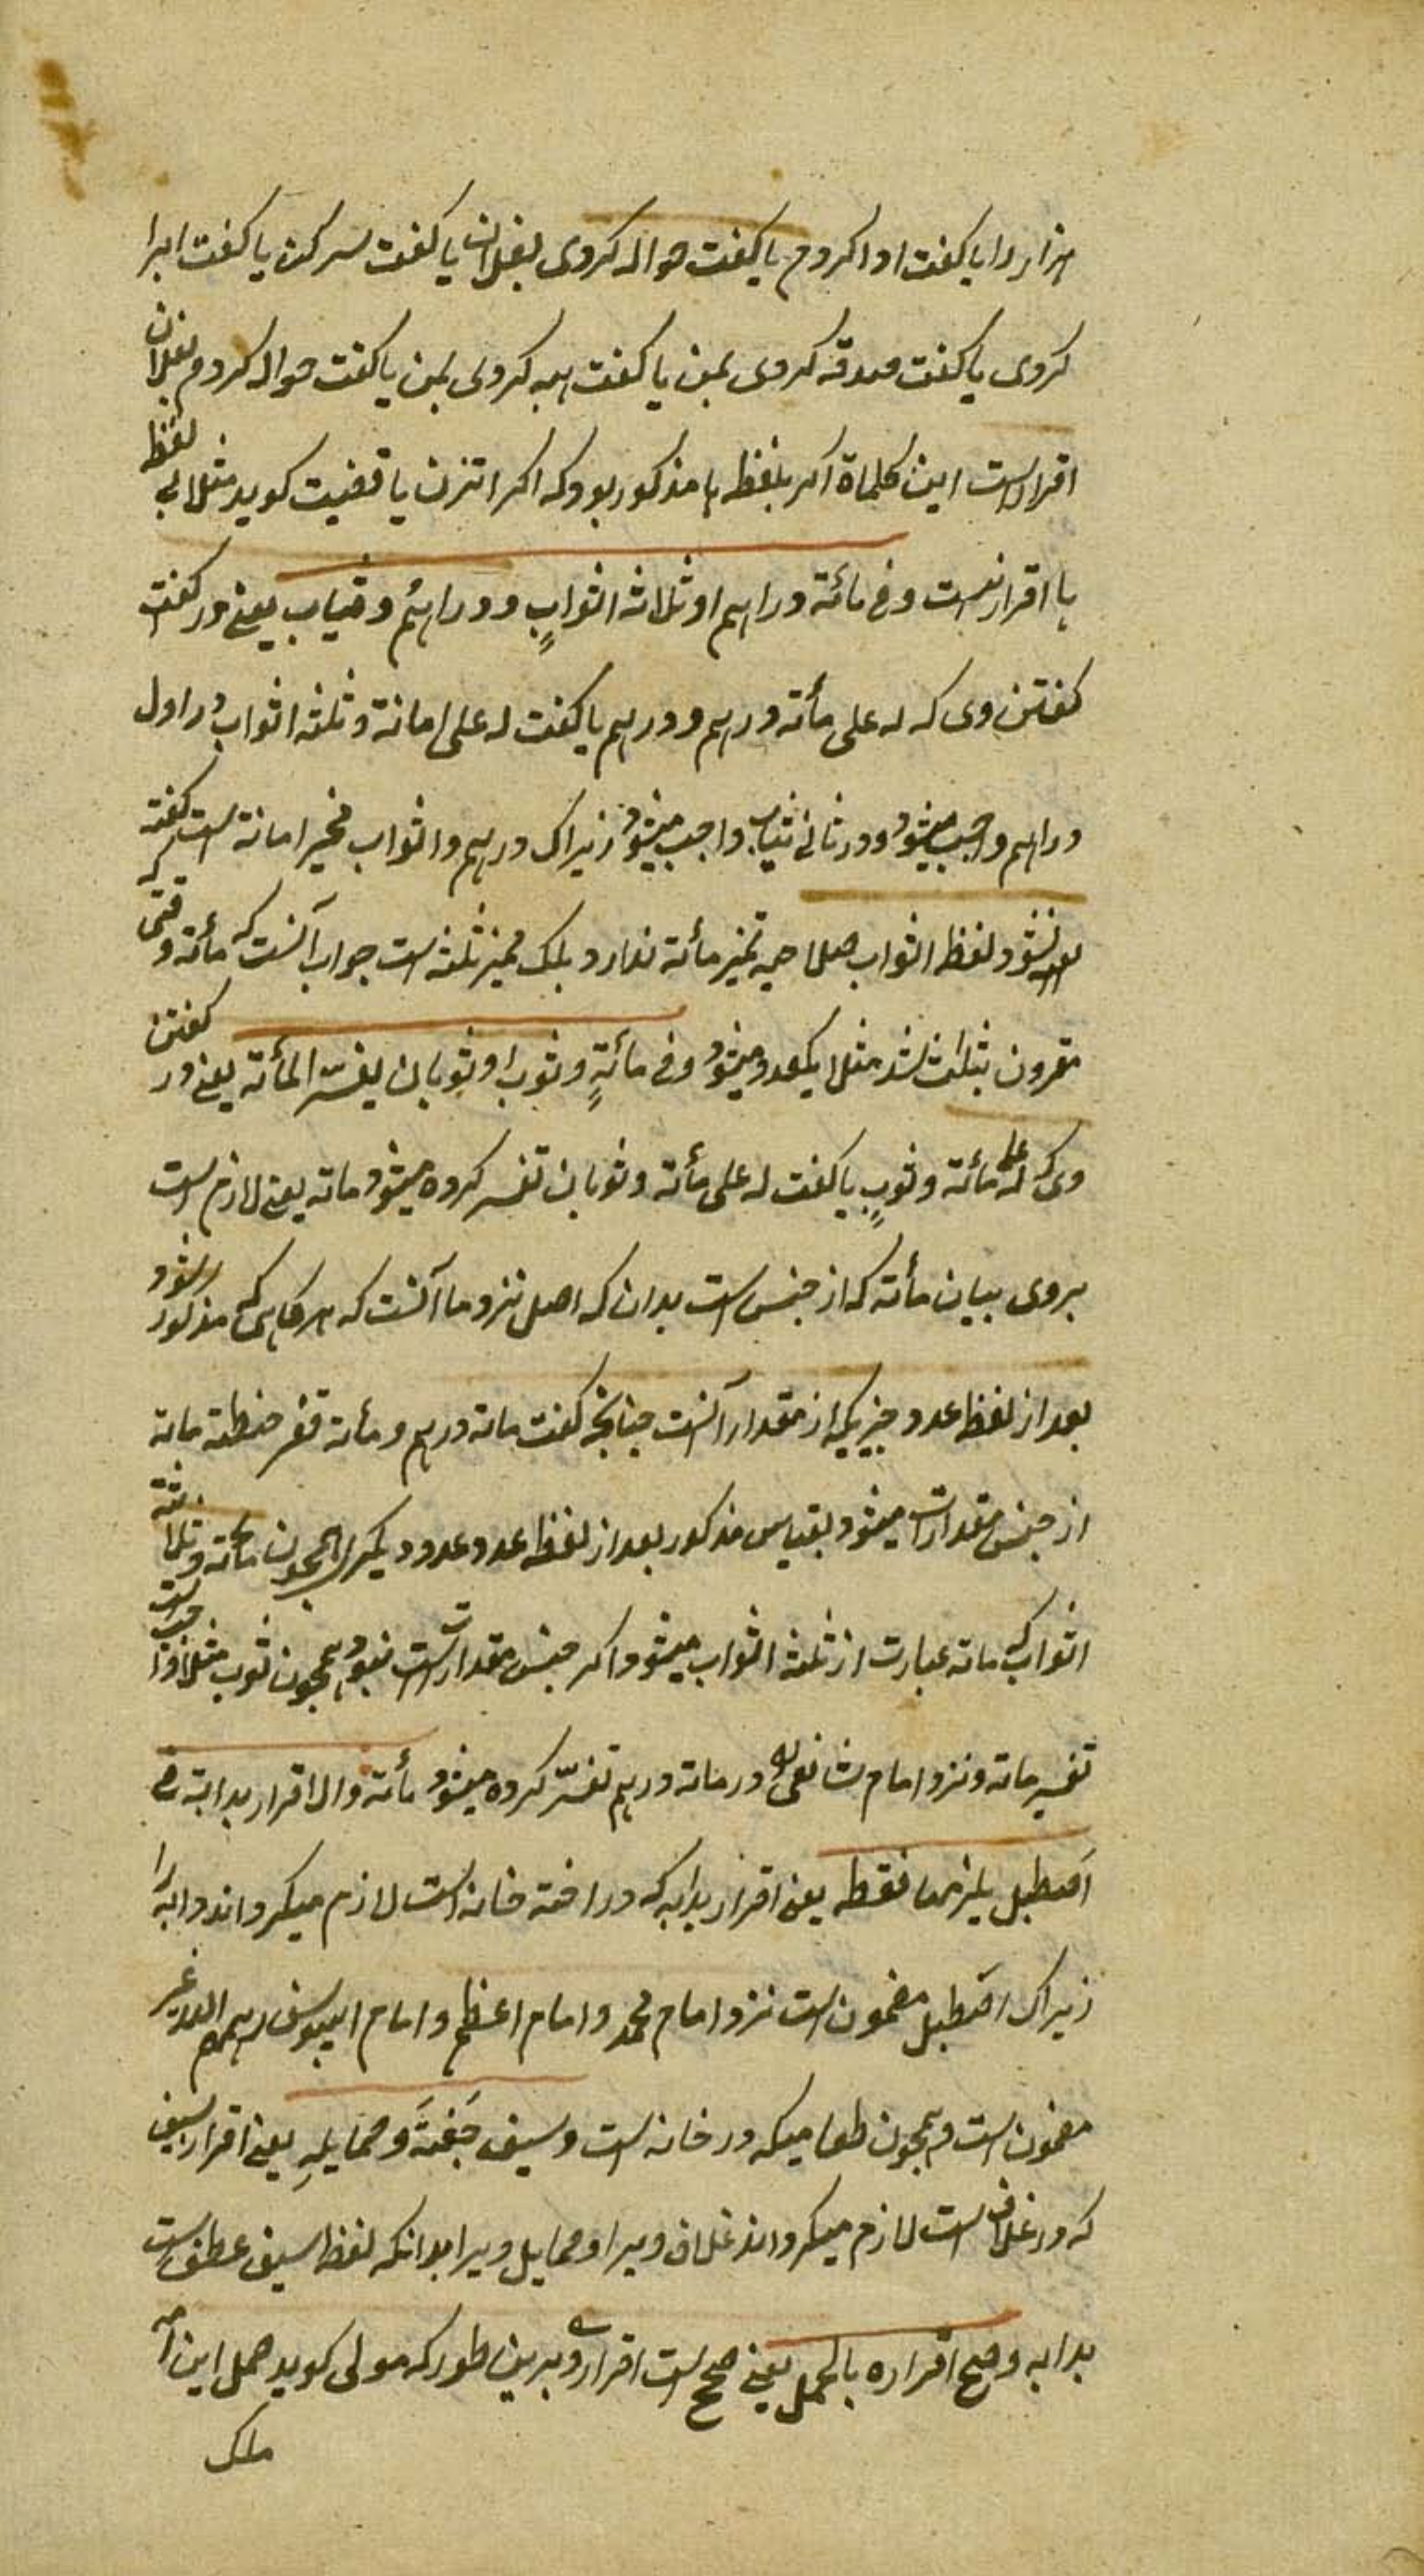 هزار را یا کفت ادا کردم یا کفت حواله کردی بفلان یا کفت سر کن یا کفت ابرا
کردی یا کفت صدقه کردی بمن یا کفت هبه کردی بمن یا کفت حواله کردم بفلان
اقرار است این کلماة اکر بلفظ ها مذکور بود که اکر اتزن یا قضیت کوید مثلا بی لفظ
ها اقرار نیست وفی مائة ودراهم او ثلاثة اثوابٍ ودراهم وثیاب یعنی در کفت
کفتن وی که له علی مأته درهم ودرهم یا کفت له علی امانة وثلثه اثواب در اول
دراهم واجب میشود ودر ثانی ثیاب واجب میشود زیراک درهم واثواب ممیز امانة است کفته
نشود لفظ اثواب صلاحیه تمیز مأته ندارد بلک ممیز ثلثه است جواب آنست که مأته وقتی
مقرون بثلاث شد مثل یکعدد میشود وفی مائةٍ وثوب او ثوبان یفسّر المأته یعنی در کفتن
وی که له علی مائه وثوبٍ یا کفت له علی مأته وثوبان تفسیر کرده میشود ماته یعنی لازم است
بروی بیان مأته که از جنس است بدان که اصل نزد ما آنست که هرکاهی که مذکور شود
بعد از لفظ عدد چیزیکه از مقدار آنست چنانچه کفت ماته درهم و مأته قفیز حنطه ماته
از جنس مقدارات میشود بقیاس مذکور بعد از لفظ عدد عدد دیکر را همچون مائه وثلاثة
اثواب که ماته عبارت از ثلثه اثواب میشود اکر جنس مقدارات نبود همچون ثوب مثلا
تفسیر ماته ونزد امام شافعی در ماته درهم تفسیر کرده میشود مأته والاقرار بدابة فی
اصطبل یلزمها فقط یعنی اقرار بدابه که در اخته خانه است لازم میکرداند دابه را
زیراک اصطبل مضمون است نزد امام محمد وامام اعظم وامام ابیوسف رحمهم الله غیر
مضمون است همچون طعامیکه در خانه است وسیف جَفنَهَ وحمایلهِ یعنی اقرار بسیف
که در غلاف است لازم میکرداند غلاف ویرا وحمایل ویرا بدانکه لفظ سیف عطف است
بدابه وصح اقراره بالحمل یعنی صحیح است اقرار وی برین طور که مولی کوید حمل این امه
ملک